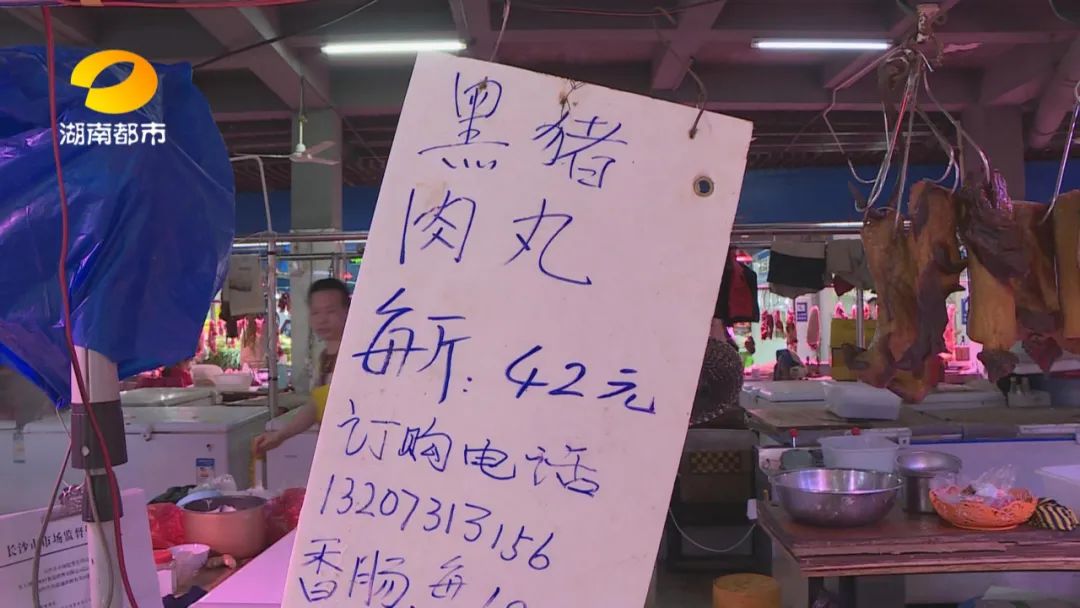 湖南都市
黑猪
肉丸
每斤:42元
订购电话
13207313156
香肠每
长沙市市场监督